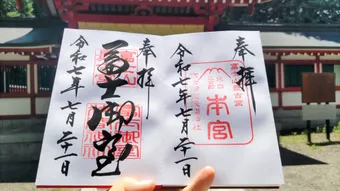 奉拝
本宮
令和七年七月二十一日
奉拝
冨士御室
令和七年七月二十一日